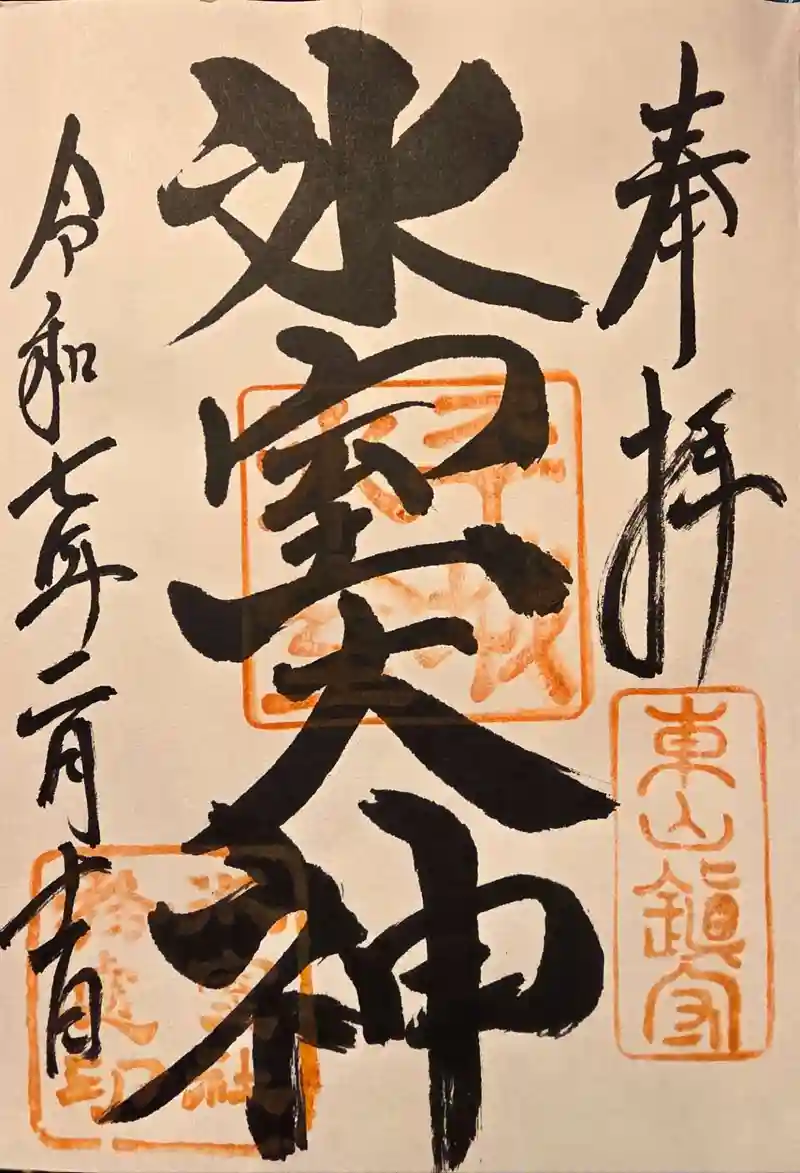 奉拝
東山鎮守
氷室大神
令和七年二月十一日